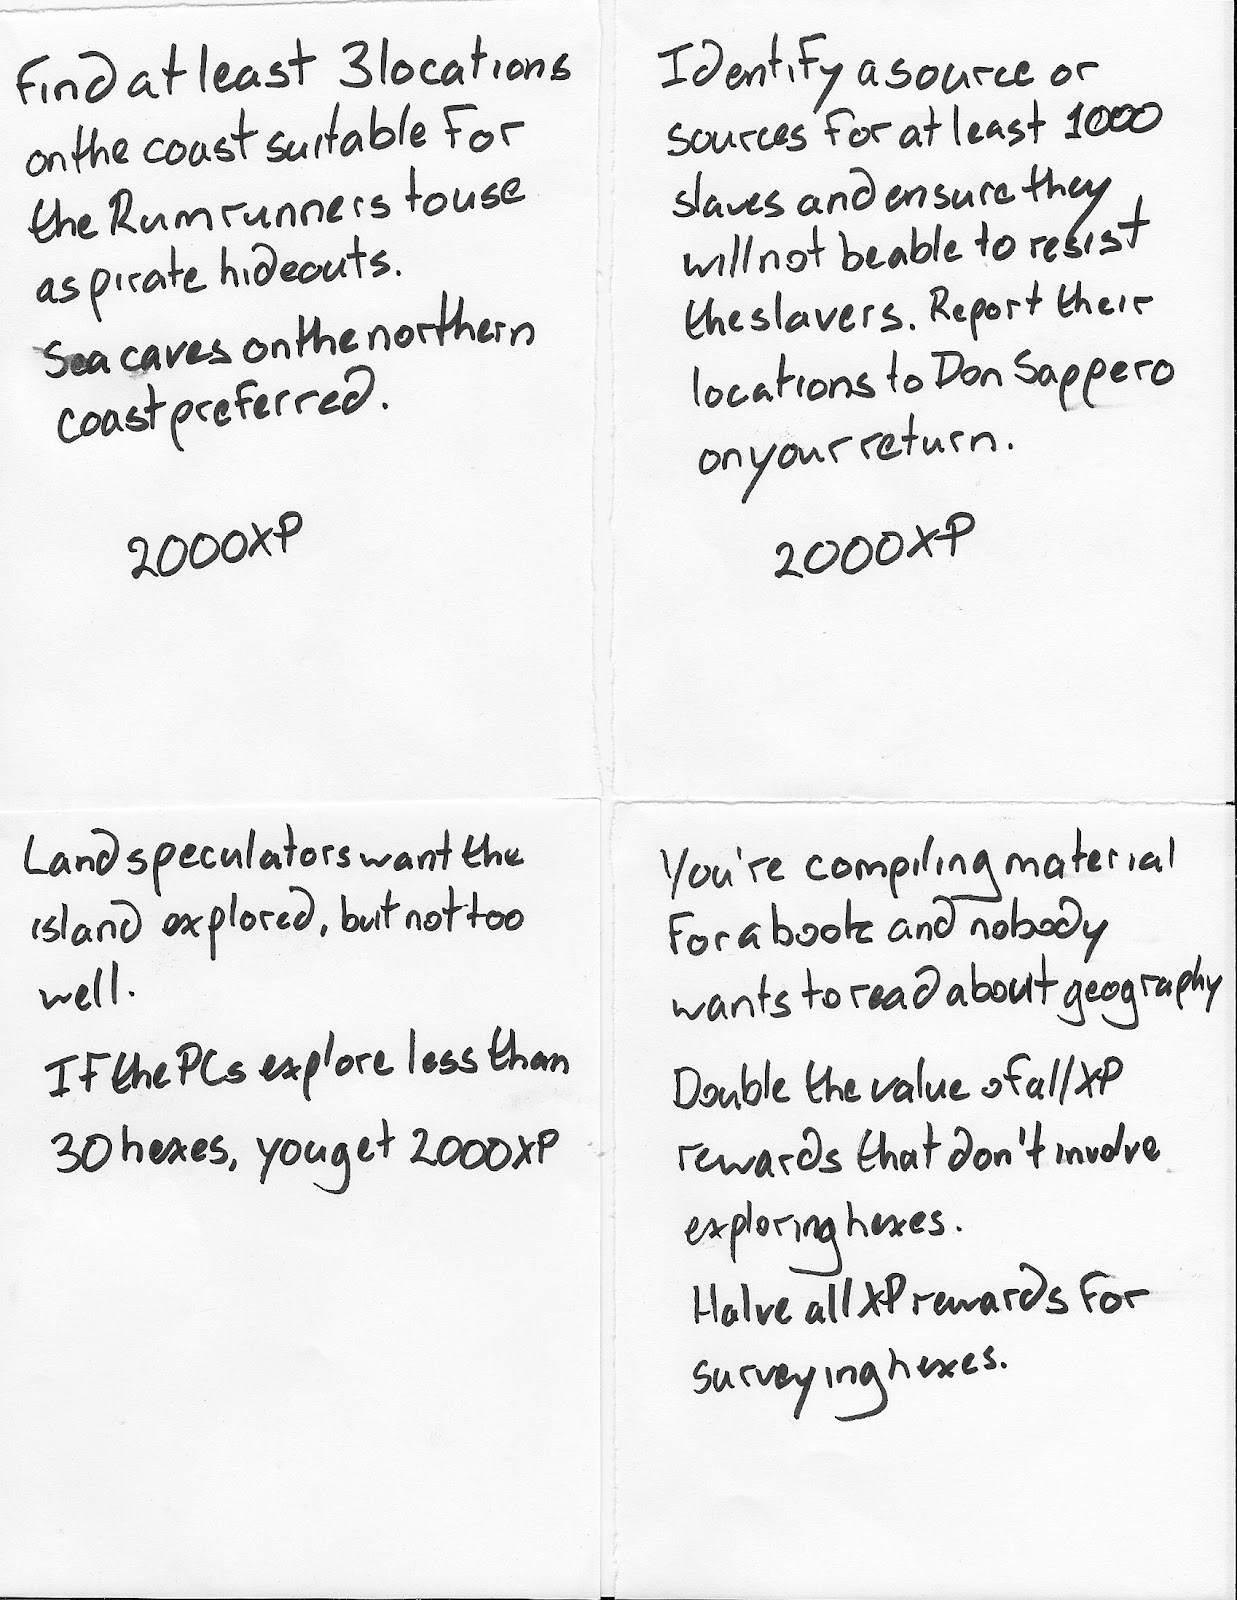 Find at least 3 locations
on the coast suitable for
the Rumrunners to use
as pirate hideouts.
Sea caves on the northern
coast preferred.
2000XP
Identify a source or
sources for at least 1000
slaves and ensure they
will not be able to resist
the slavers. Report their
locations to Don Sappero
on your return.
2000XP
Land speculators want the
island explored, but not too
well.
If the PCs explore less than
30 hexes, you get 2000XP
You're compiling material
for a book and nobody
wants to read about geography
Double the value of all XP
rewards that don't involve
exploring hexes.
Halve all XP rewards for
surveying hexes.